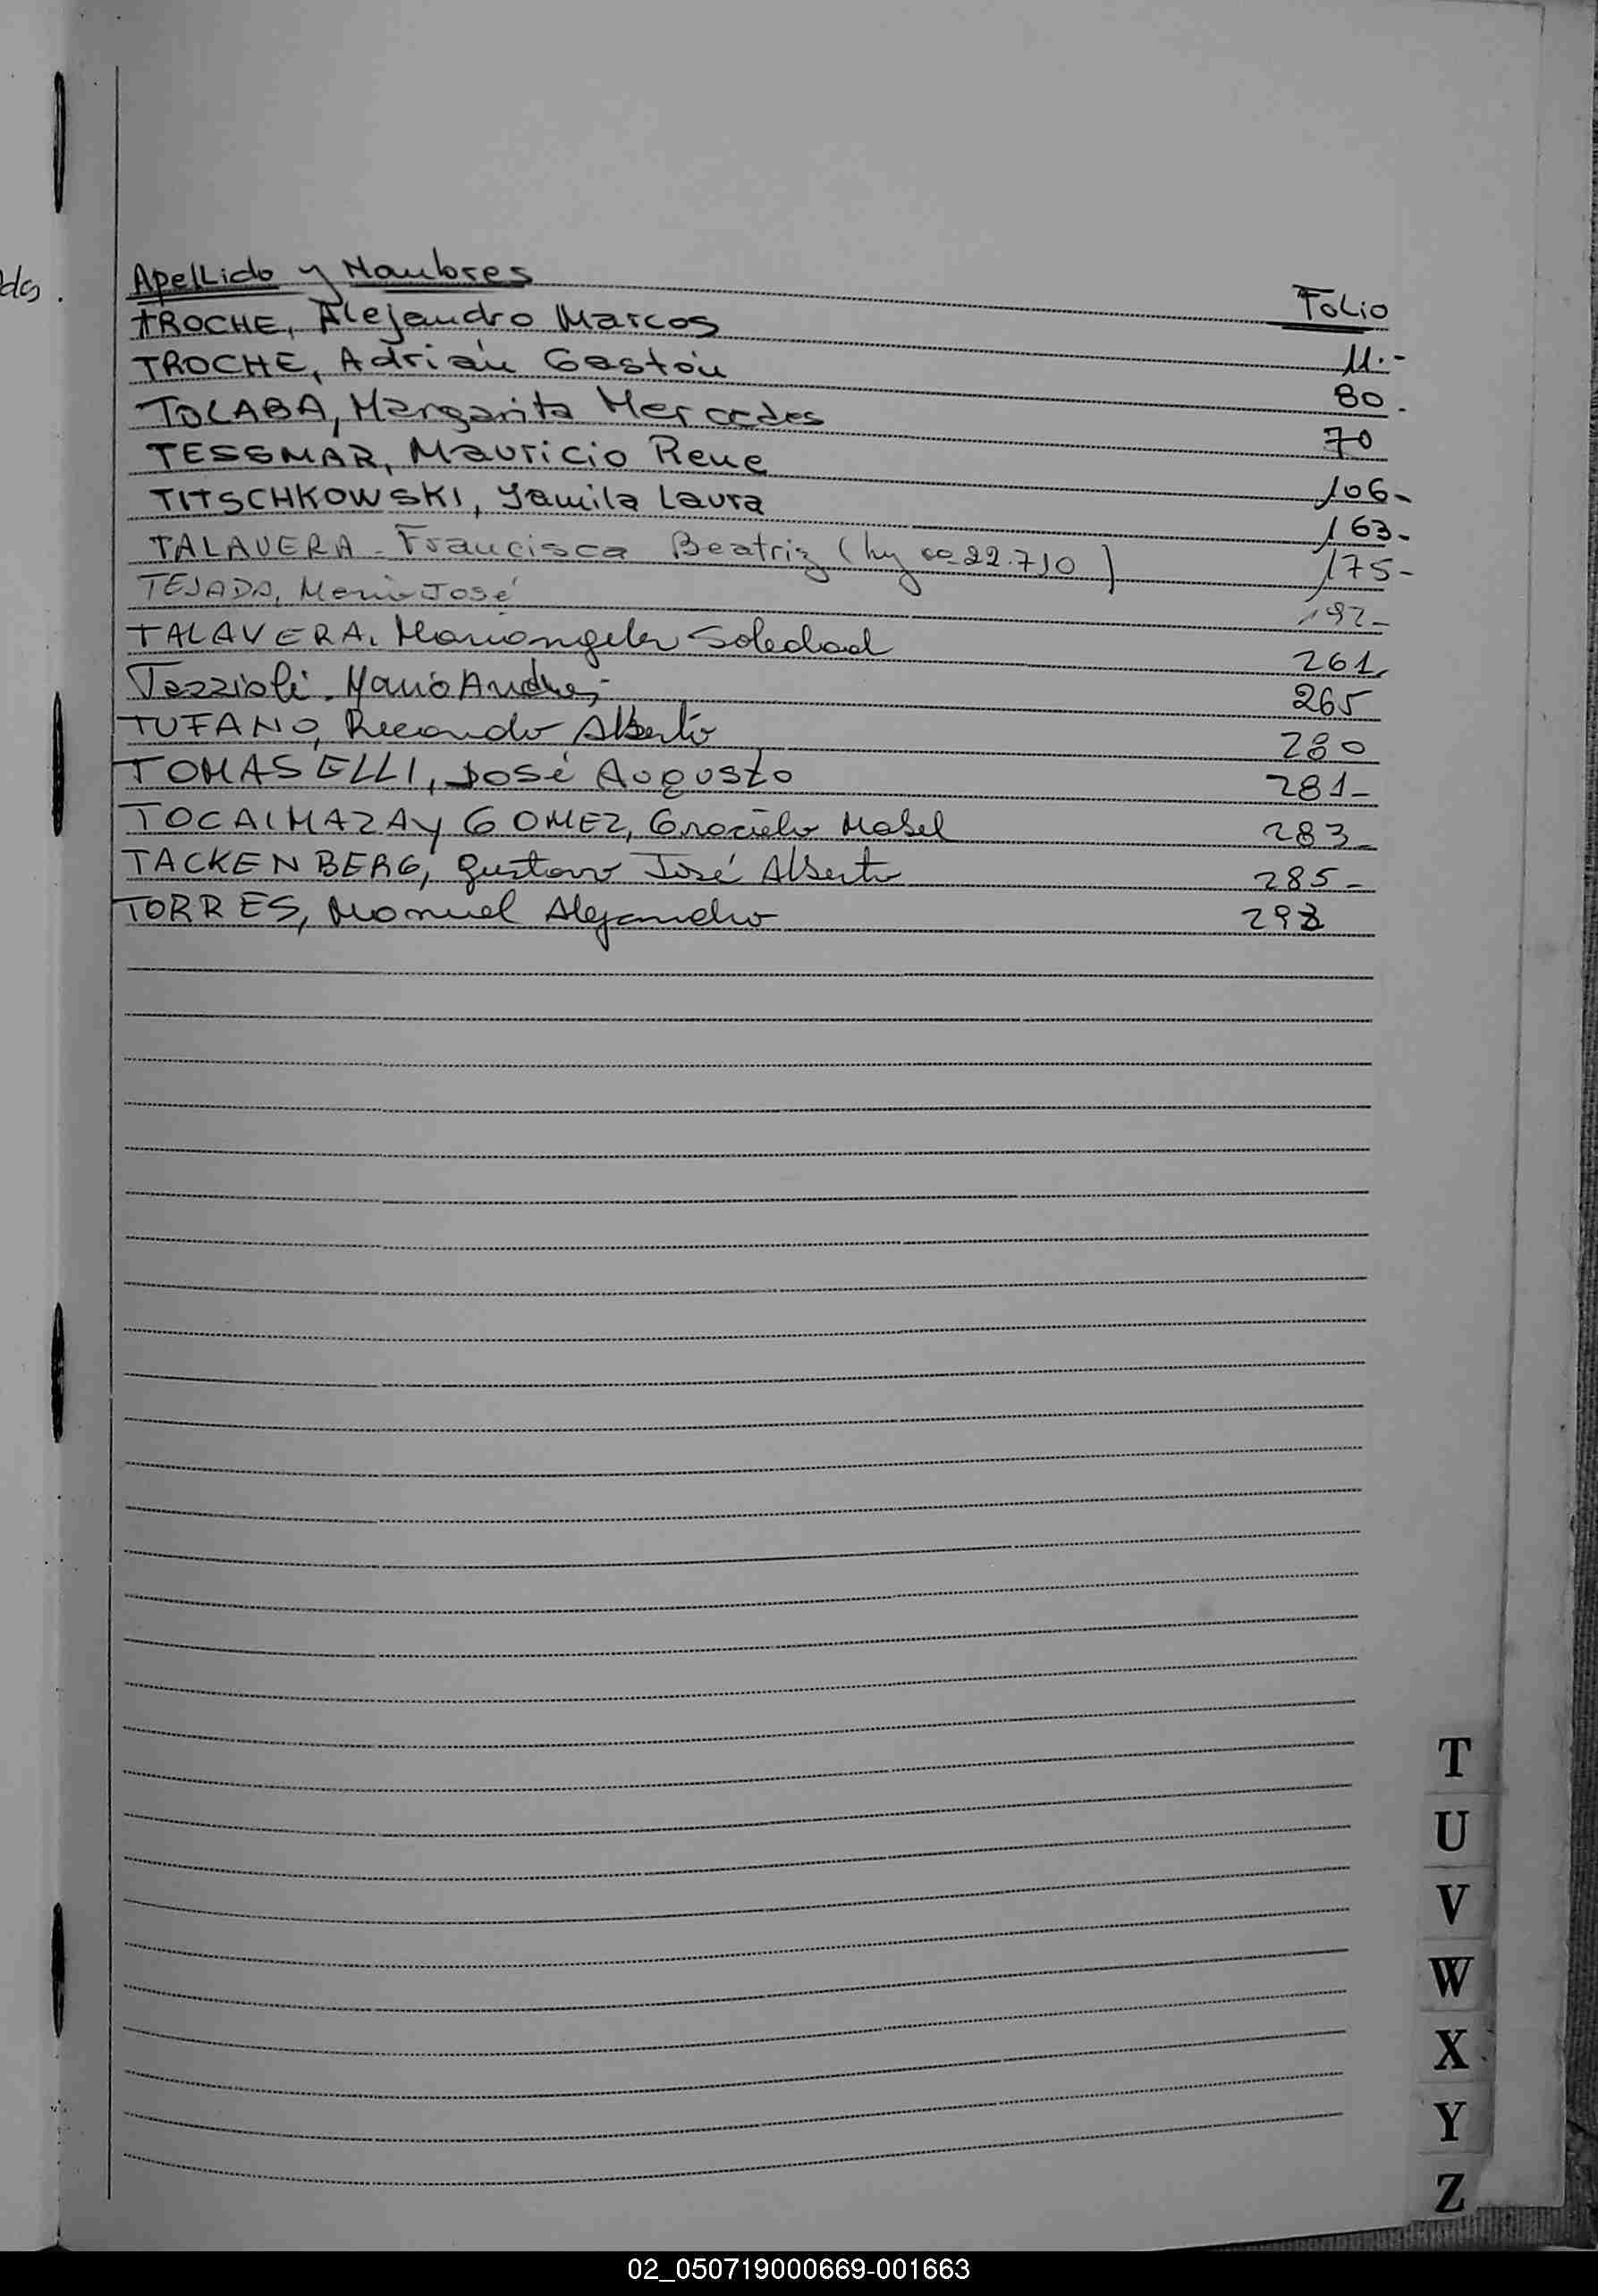 Apellido y Nombres Folio
TROCHE, Alejandro Marcos 11.-
TROCHE, Adrián Gastón 80.
TOLABA, Margarita Mercedes 70
TESSMAR, Mauricio Rene 106-
TITSCHKOWSKI, Yamila Laura 163-
TALAVERA - Francisca Beatriz ( 22.710 ) 175-
TEJADA, María José 192-
TALAVERA. Mariangeles Soledad 261
Tazzioli. Mario Andres 265
TUFANO, Ricardo Alberto 280
TOMASELLI, José Augusto 281-
TOCAIMAZA y GOMEZ, Graciela Mabel 283-
TACKENBERG, Gustavo José Alberto 285-
TORRES, Manuel Alejandro
T
U
V
W
X
Y
Z
02_050719000669-001663